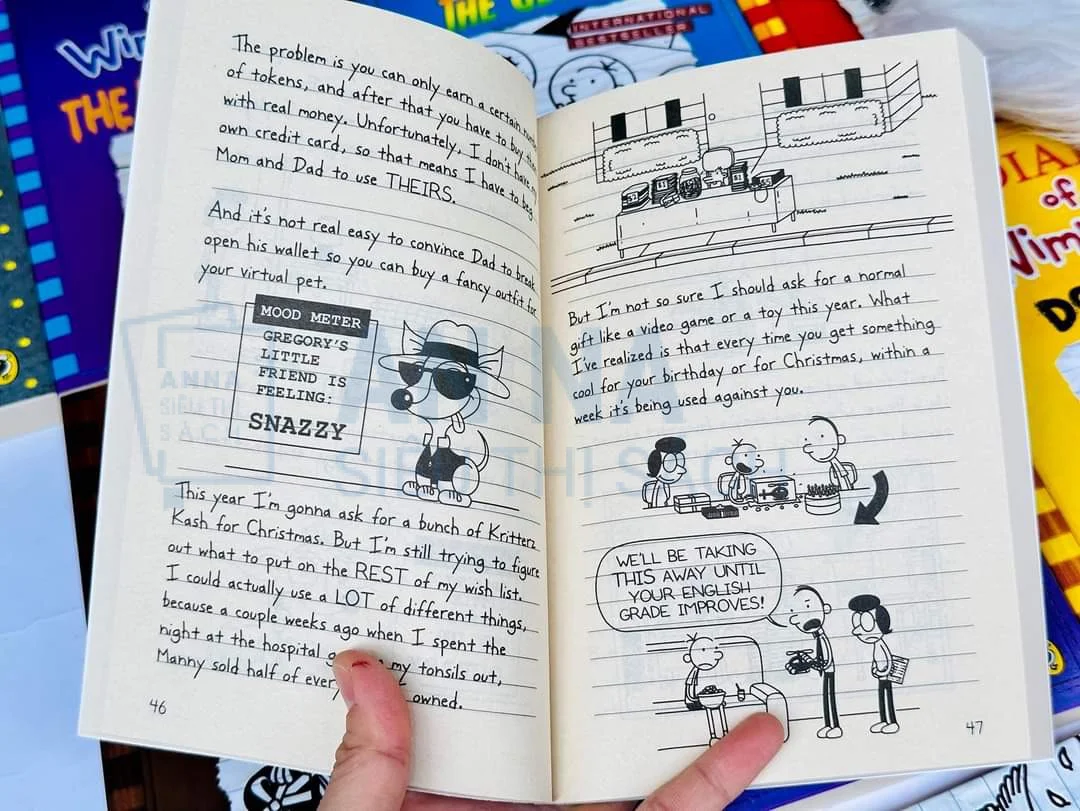 THE
INTERNATIONAL
BESTSELLER
Wim
THE
The problem is you can only earn a certain
of tokens, and after that you have to buy
with real money. Unfortunately, I don't have
own credit card, so that means I have to beg
Mom and Dad to use THEIRS.
And it's not real easy to convince Dad to break
open his wallet so you can buy a fancy outfit for
your virtual pet.
MOOD METER
GREGORY'S
LITTLE
FRIEND IS
FEELING:
SNAZZY
This year I'm gonna ask for a bunch of Kritterz
Kash for Christmas. But I'm still trying to figure
out what to put on the REST of my wish list.
I could actually use a LOT of different things,
because a couple weeks ago when I spent the
night at the hospital my tonsils out,
Manny sold half of owned.
46
But I'm not so sure I should ask for a normal
gift like a video game or a toy this year. What
I've realized is that every time you get something
cool for your birthday or for Christmas, within a
week it's being used against you.
WE'LL BE TAKING
THIS AWAY UNTIL
YOUR ENGLISH
GRADE IMPROVES!
47
of
ANNA
SIÊU THỊ
SÁCH
ANNA
SIÊU THỊ SÁCH